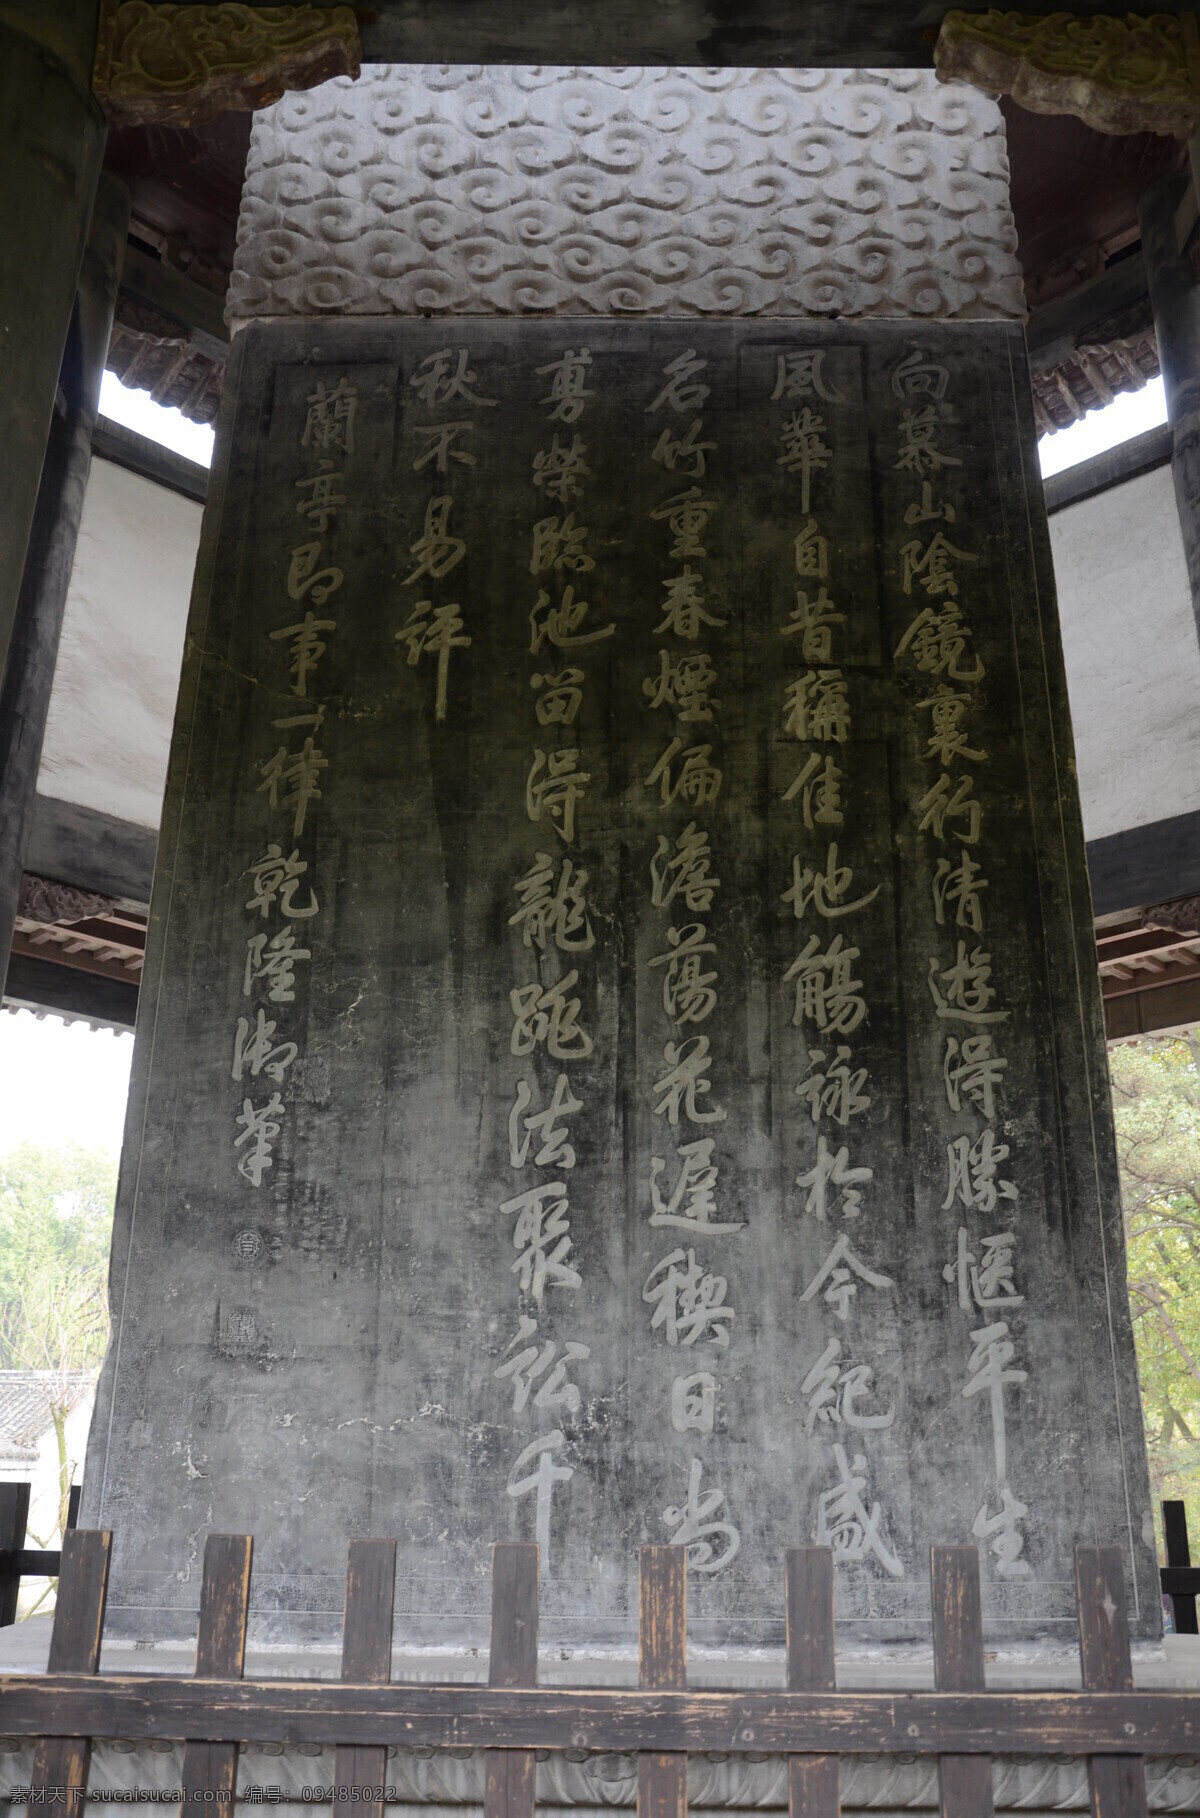 向慕山陰鏡裏行清遊得勝愜平生
風華自昔稱佳地觴詠於今紀盛
名竹重春煙偏澹蕩花遲禊日尚
剪榮臨池留得龍跳法聚訟千
秋不易評
蘭亭即事一律乾隆御筆
素材天下 sucaisucai.com 编号：09485022